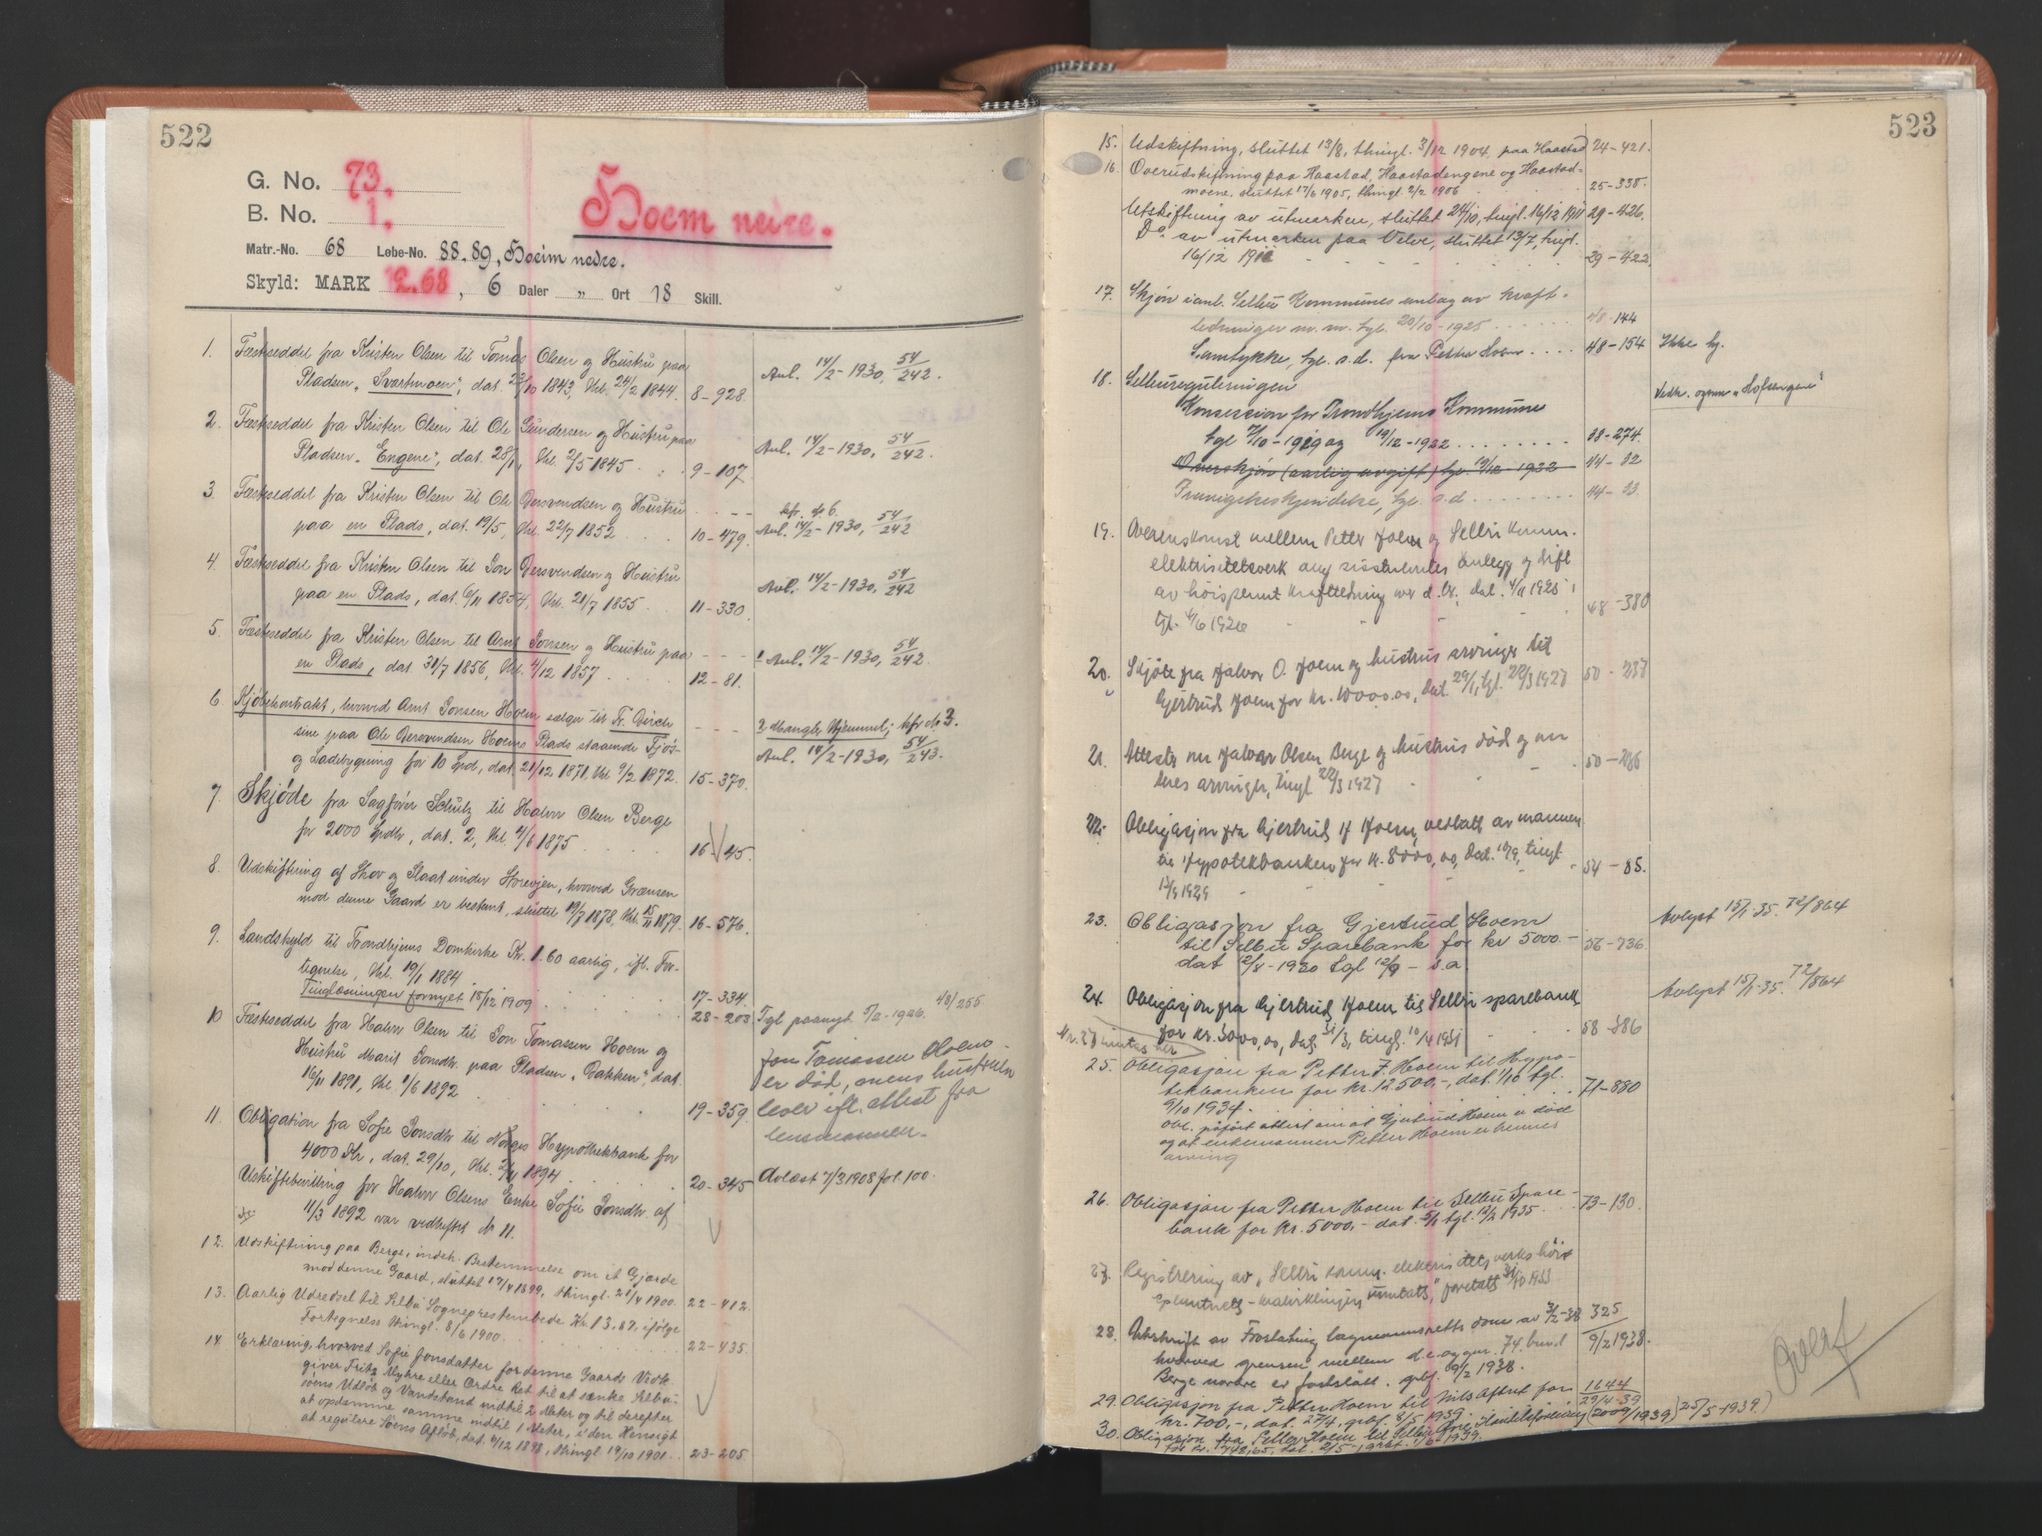 522
G. No. 73.
B. No. 1.
Hoem nedre.
Matr.-No. 68 Løbe-No. 88.89, Hoeim nedre.
Skyld: MARK 2.68, 6 Daler " Ort 18 Skill.
1. Fæsteseddel fra Kristen Olsen til Tomas Olsen og Hustru paa
Pladsen "Svartmoen", dat. 23/10 1843, thl. 24/2 1844. 8-928. Avl. 14/2-1930, 54/242.
2. Fæsteseddel fra Kristen Olsen til Ole Gundersen og Hustru paa
Pladsen "Engene", dat. 28/1, thl. 2/5 1845 9-107 Avl. 14/2-1930, 54/242.
3. Fæsteseddel fra Kristen Olsen til Ole Bersvendsen og Hustru kfr. № 6.
paa en Plads, dat. 19/5, thl. 22/7 1852 10-479. Avl. 14/2-1930, 54/242
4. Fæsteseddel fra Kristen Olsen til Jon Bersvendsen og Hustru
paa en Plads, dat. 6/11 1854, thl. 21/7 1855 11-330. Avl. 14/2-1930, 54/242
5. Fæsteseddel fra Kristen Olsen til Arnt Jonsen og Hustru paa
en Plads, dat. 31/7 1856, thl. 4/12 1857 12-81. Avl. 14/2-1930, 54/242.
6. Kjøbekontrakt, hvorved Arnt Jonsen Hoem sælger til Fr. Birch
sine paa Ole Bersvendsen Hoems Plads staaende Fjøs- ? Mangler Hjemmel; kfr № 3.
og Ladebygning for 10 Spd, dat. 21/12 1871, thl. 9/2 1872. 15-370. Avl. 14/2-1930, 54/243.
7. Skjøde fra Sagfører Schulz til Halvor Olsen Berge
for 2000 Spdlr, dat. 2, thl. 4/6 1875 16-45.
8. Udskiftning af Skov og Slaat under Storevjen, hvorved Grænsen
mod denne Gaard er bestemt, sluttet 19/7 1878, thl. 15/11 1879. 16-576.
9. Landskyld til Trondhjems Domkirke Kr. 1.60 aarlig, ifl. For-
tegnelse, thl. 19/1 1884. 17-334
Tinglæsningen fornyet 18/12 1909 28-203 Tgl paanyt 5/2-1926. 48/255
10 Fæsteseddel fra Halvor Olsen til Jon Tomassen Hoem og Jon Tomassen Hoem
Hustru Marit Jonsdtr. paa Pladsen "Bakken" dat. er død, mens hustruen
16/11 1891, thl 1/6 1892 19-359. lever ifl. Attest fra
lensmannen.
11. Obligation fra Sofie Jonsdtr til Norges Hypothekbank for
4000 Kr, dat. 29/10, thl. 2/11 1894 20-345 Avlæst 7/3 1908 fol. 100.
Uskiftebevilling for Halvor Olsens Enke Sofie Jonsdtr. af
11/3 1892 var vedheftet № 11.
12. Udskiftning paa Berge, indeh. Bestemmelse om et Gjærde
mod denne Gaard, sluttet 17/4 1899, thingl. 21/4 1900. 22-412.
13. Aarlig Udredsel til Selbu Sognepræstembede Kr. 13.87, ifølge
Fortegnelse thingl. 8/6 1900. 22-435.
14. Erklæring, hvorved Sofie Jonsdatter for denne Gaards Vedk.
giver Fritz Myhre eller Ordre Ret til at sænke Selbu-
søens Udløb og Vandstand indtil 2 Meter og til derefter
at opdæmme samme indtil 1 Meter, i den Hensigt
at regulere Søens Afløb, dat. 9/12 1898, thingl 19/10 1901. 23-205
523
15. Udskiftning, sluttet 13/8, thingl. 3/12 1904, paa Haastad 24-421.
16. Overudskiftning paa Haastad, Haastadengene og Haastad-
moene, sluttet 17/6 1905, thingl. 2/2 1906 25-338.
Utskiftning av utmarken, sluttet 24/10, tingl. 16/12 1911 29-426.
Do av utmarken paa Velve, sluttet 13/7, tingl.
16/12 1911 29-422.
17. Skjøn i anl. Selbu Kommunes anlæg av kraft-
ledninger m. m. tgl. 20/10-1925 48-144
Samtykke, tgl. s.d. fra Petter Hoem 48-154 Ikke hj.
18. Selbureguleringen Vedk. ogsaa "Hofsengene"
Konsession for Trondhjems Kommune
tgl 7/10-1919 og 19/12-1922 38-274.
Overskjøn (aarlig avgift) tgl. 19/12-1922 44-32
Frimyckelskjendelse, tgl. s.d. 44-33.
19. Overenskomst mellem Petter Hoem og Selbu komm.
elektrisitetsverk ang. sistnevntes anlegg og drift
av høispent kraftledning over d. br., dat. 4/11 1925,
tgl. 4/6 1926 48-380
20. Skjøte fra Halvor O. Hoem og hustrus arvinger til
Gjertrud Hoem for kr. 10000.00, dat. 29/1, tgl. 22/3 1927 50-237
21. Attester om Halvor Olsen Berge og hustrus død og om
deres arvinger, tingl. 22/3 1927 50-236
22. Obligasjon fra Gjertrud H Hoem, vedtatt av mannen
til Hypotekbanken for kr. 8000,00, dat. 10/9, tingl.
13/9 1929 54-85.
23. Obligasjon fra Gjertrud Hoem
til Selbu Sparebank for kr 5000.- 56-736 Avlyst 15/1-35. 72/864
dat 12/8-1930 tgl 12/9-s.a.
24. Obligasjon fra Gjertrud Hoem til Selbu sparebank Avlyst 15/1-35. 72/864
for kr. 3000,00, dat. 31/3, tingl. 10/4 1931 58-386
Nr. 27 inntas her
25. Obligasjon fra Petter J. Hoem til Hypo-
tekbanken for kr. 12500.-, dat. 1/10 tgl. 71-880
9/10 1934.
Obl. påført attest om at Gjertrud Hoem er død
og at enkemannen Petter Hoem er hennes
arving
26. Obligasjon fra Petter Hoem til Selbu Spare-
bank for kr. 5000.- dat. 5/1 tgl. 12/2 1935. 73-130.
27. Registrering av "Selbu komm. elektrisitetsverks høi-
spentnett - Mebuklingen unntatt," foretatt 31/10 1933
28. Avskrift av Forslating lagmannsretts dom av 3/2-38 325/9/2 1938.
hvorved grensen mellem d.e. og gnr. 74 bnr. 1
Berge nordre er fastslått. grbf. 9/2 1938.
29. Obligasjon fra Petter Hoem til Nils Aftret for 1144/29/4-39
kr. 700,-, dat. 27/4, grbf. 8/5 1939.
30. Obligasjon fra Petter Hoem til Selbu (2009/1939) (25/5-1939)
for kr. 748,65, dat. 2/5-, grbf. 1/6 1939.
Overf